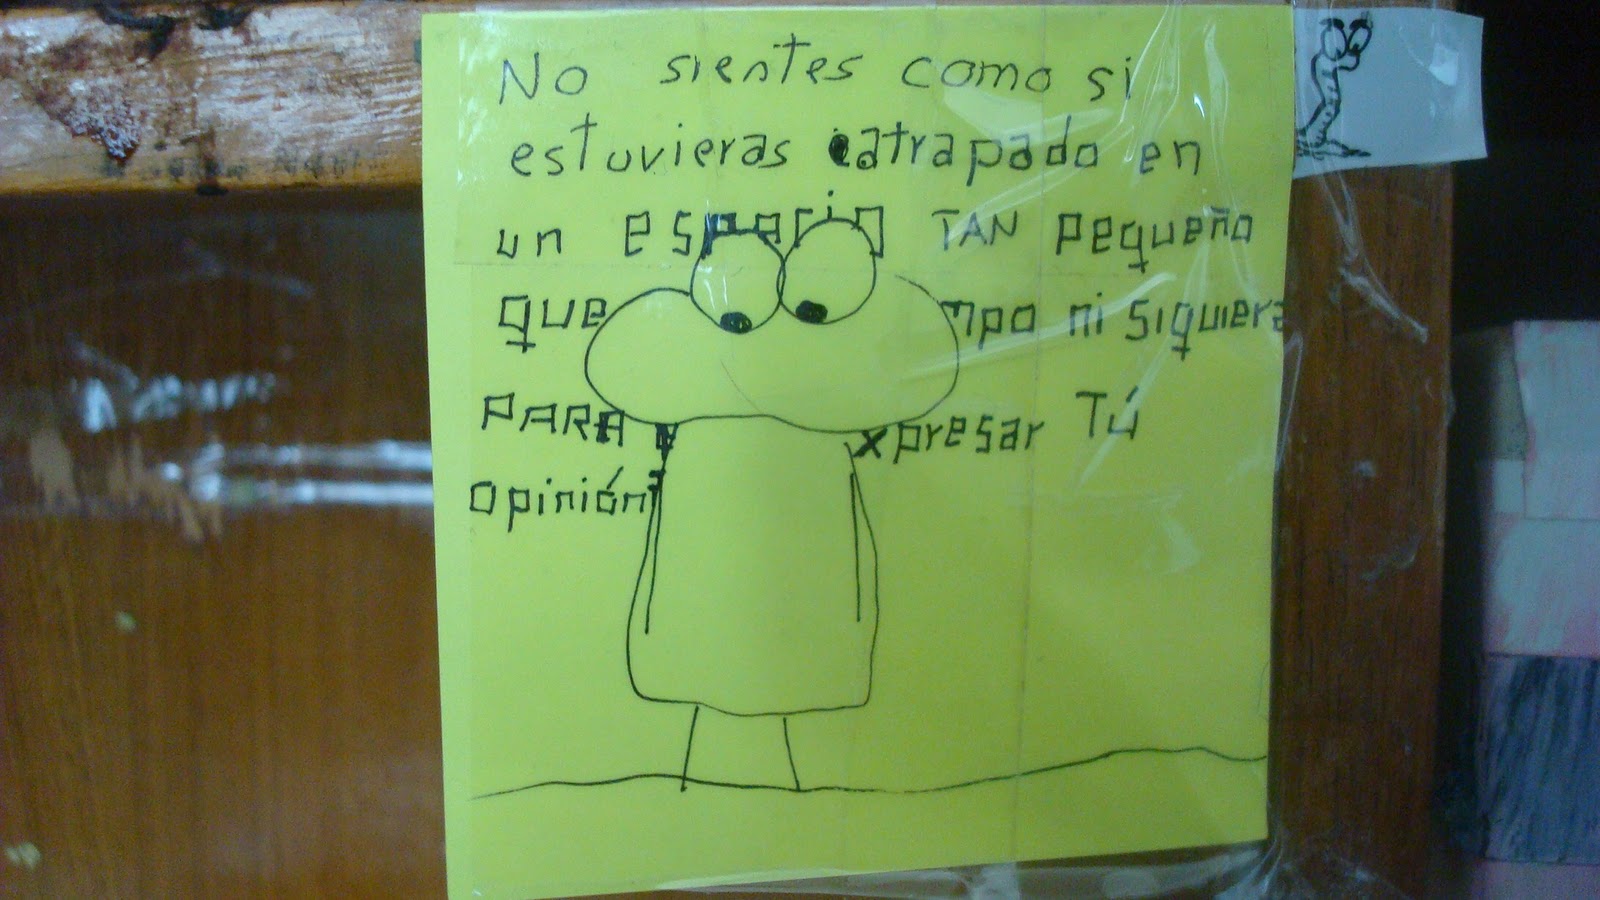 No sientes como si
estuvieras atrapado en
un espacio TAN pequeño
que mpo ni siquiera
PARA xpresar TÚ
opinión